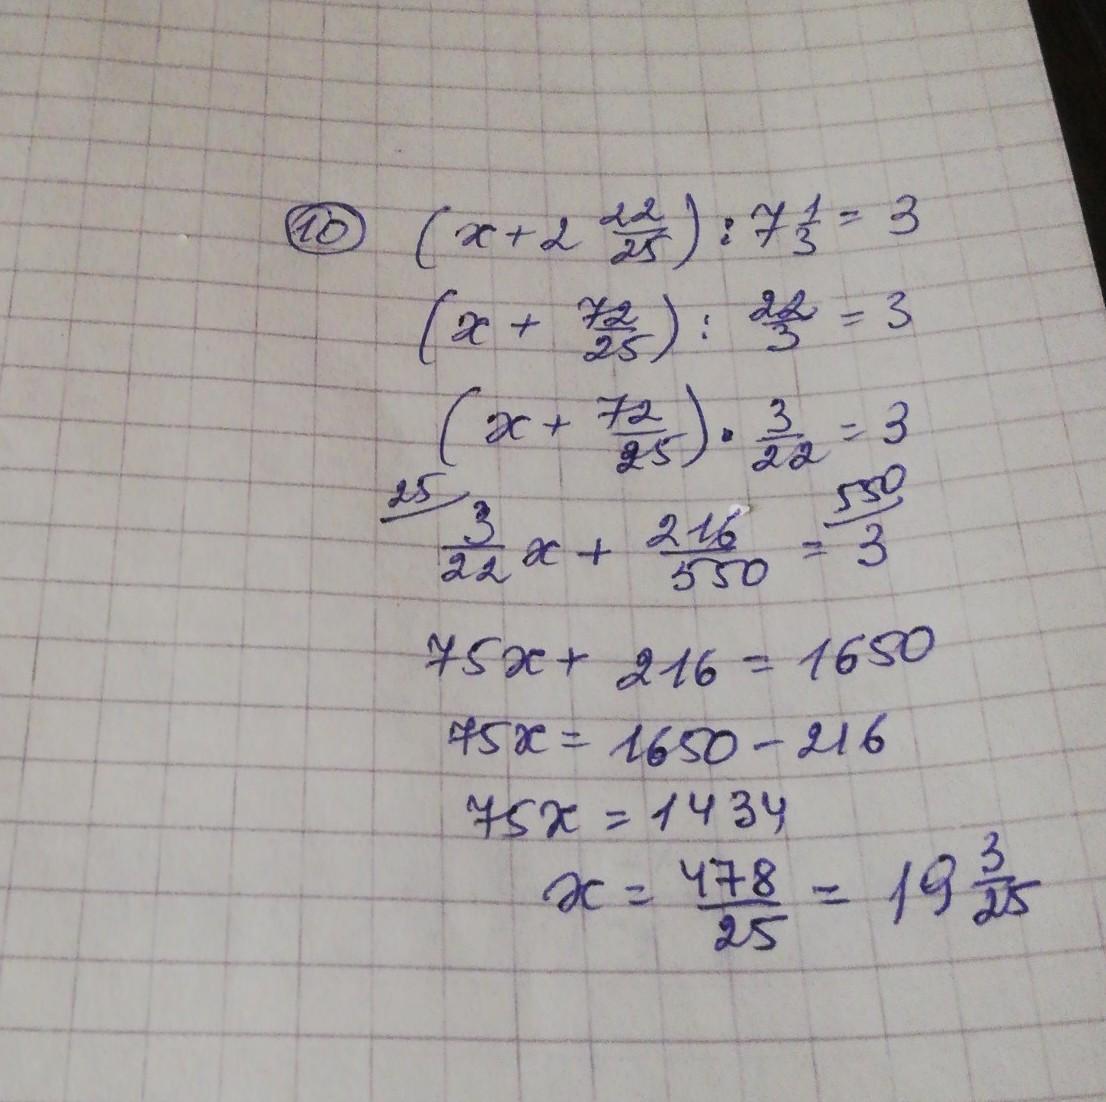 10 (x + 2 22/25) : 7 1/3 = 3
(x + 72/25) : 22/3 = 3
(x + 72/25) · 3/22 = 3
25/ 3/22 x + 216/550 = 550/ 3
75x + 216 = 1650
75x = 1650 - 216
75x = 1434
x = 478/25 = 19 3/25